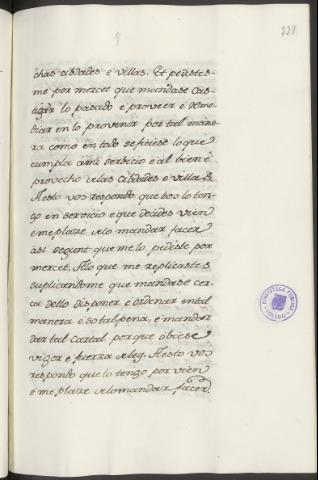 228
chas cibdades é villas. Et pedistes-
me por merced que mandase cas-
tigar lo pasado é proveer é reme-
diar en lo provenir por tal mane-
ra como en todo se ficiese lo que
cumpla á mi servicio é al bien é
provecho de las cibdades é villas.
A esto vos respondo que vos lo ten-
go en servicio é que decides vien
é me plaze de lo mandar facer
asi segunt que me lo pediste por
merced. A lo que me replicastes
suplicandome que mandase cer-
ca dello disponer é ordenar en tal
manera é so tal pena, é mandar
dar tal carta porque obiese
vigor é fuerza de ley. A esto vos
respondo que lo tengo por vien
é me plaze de lo mandar facer.
BIBLIOTECA PUBLICA
TOLEDO